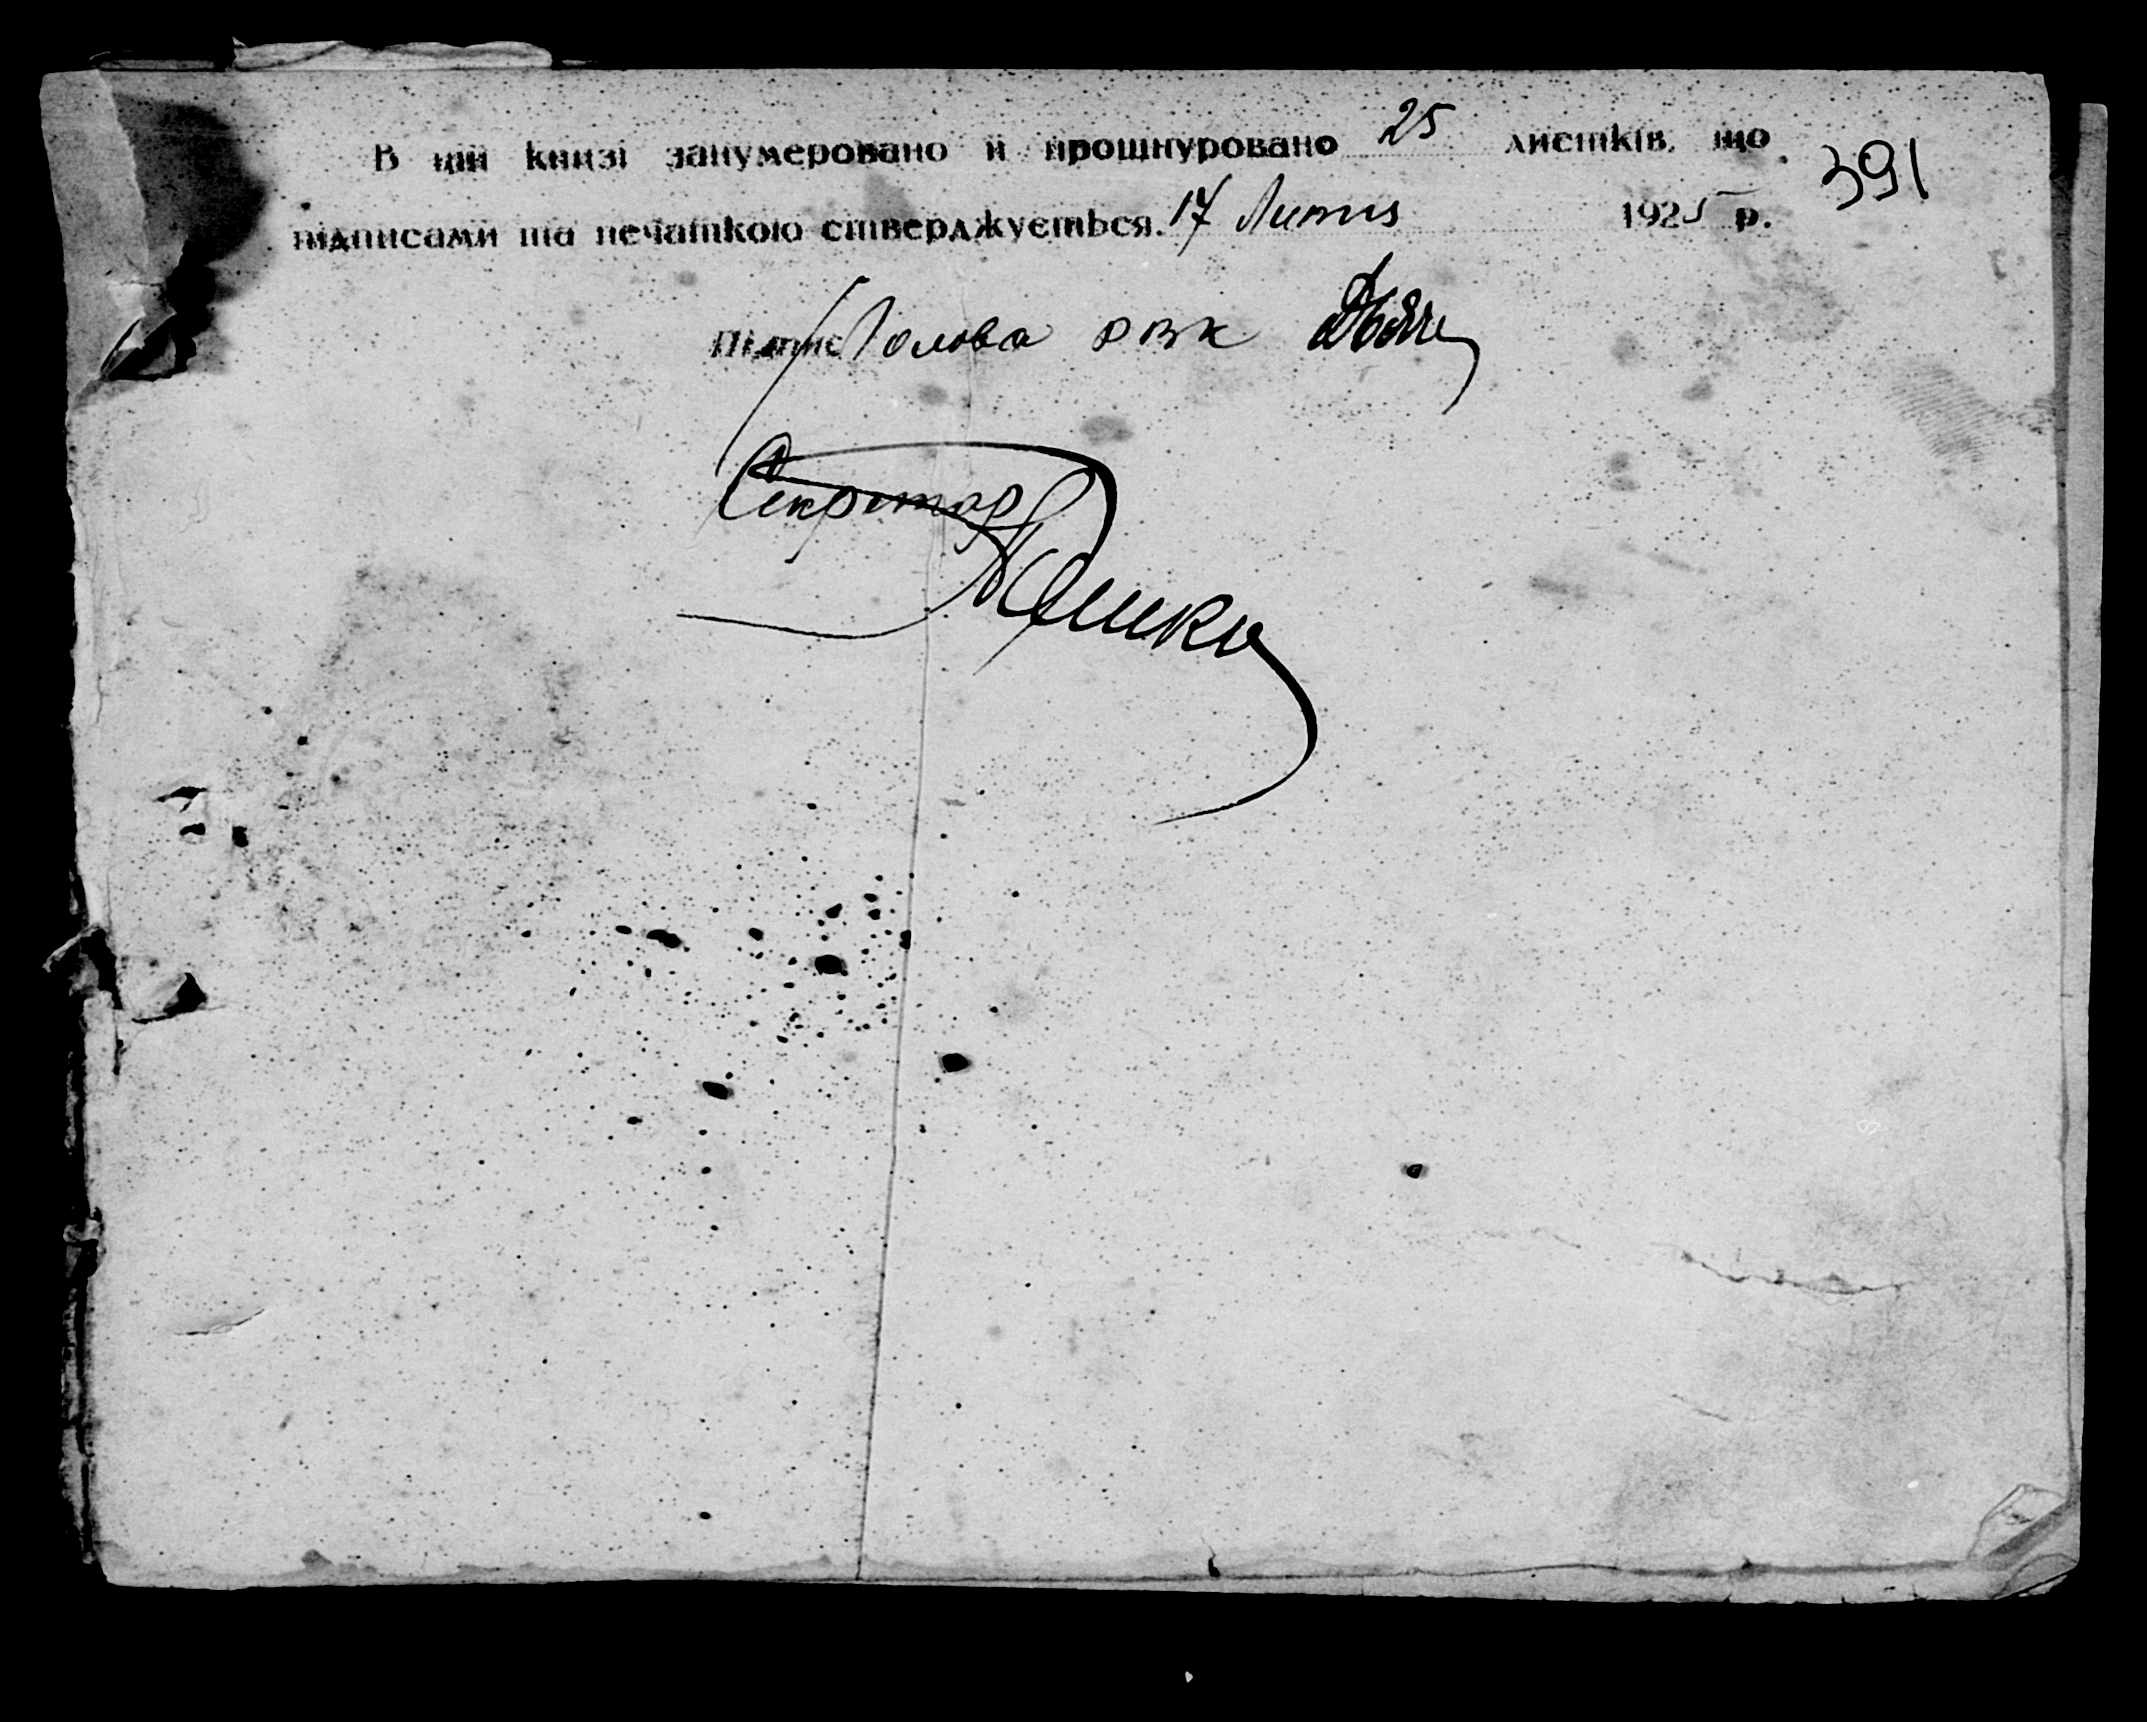 В цій книзі занумеровано й прошнуровано 25 листків, що
391
підписами та печаткою стверджується. 17 Лютня 1925 р.
Підпис Голова РВК
Секретар